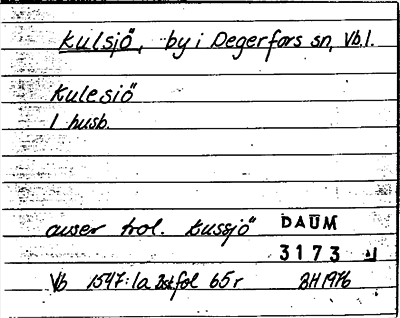 Kulsjö, by i Degerfors sn, Vb l.
Kulesiö
1 husb.
avser trol. Kussjö DAUM
3173
Vb 1547:1a fol 65r BH 1976